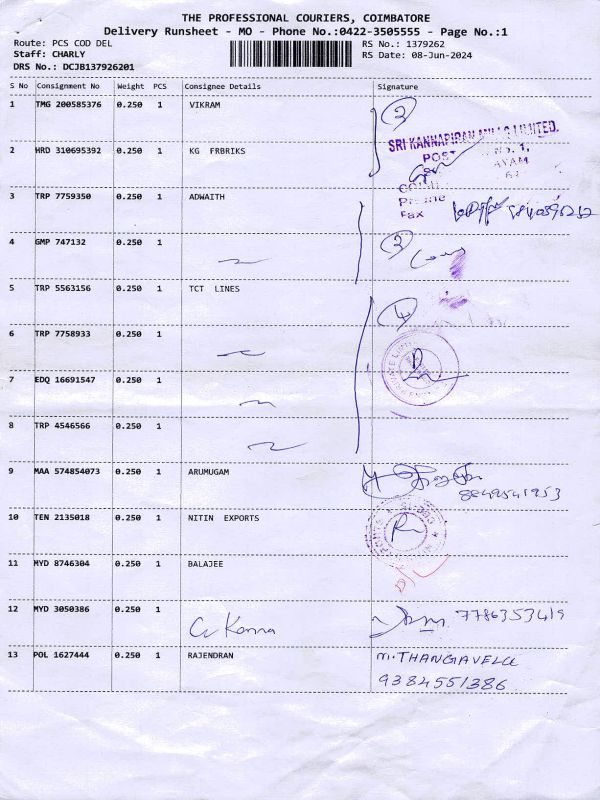 THE PROFESSIONAL COURIERS, COIMBATORE
Delivery Runsheet - MO - Phone No.:0422-3505555 - Page No.:1
Route: PCS COD DEL RS No.: 1379262
Staff: CHARLY RS Date: 08-Jun-2024
DRS No.: DCJB137926201
S No Consignment No Weight PCS Consignee Details Signature
1 TMG 200585376 0.250 1 VIKRAM 2
SRI KANNAPIRAN MILLS LIMITED.
2 HRD 310695392 0.250 1 KG FRBRIKS POST No. 1,
3 TRP 7759350 0.250 1 ADWAITH
Phone
Fax
4 GMP 747132 0.250 1 2
5 TRP 5563156 0.250 1 TCT LINES 4
6 TRP 7758933 0.250 1
7 EDQ 16691547 0.250 1
8 TRP 4546566 0.250 1
9 MAA 574854073 0.250 1 ARUMUGAM
10 TEN 2135018 0.250 1 NITIN EXPORTS
11 MYD 8746304 0.250 1 BALAJEE
12 MYD 3050386 0.250 1 Kanna 7786353419
13 POL 1627444 0.250 1 RAJENDRAN M.THANGAVELU
9384551386